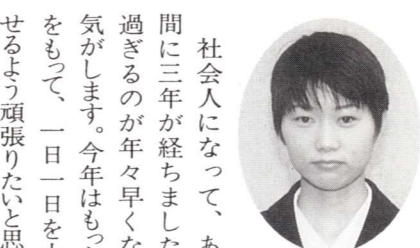 社会人になって、あ
間に三年が経ちました
過ぎるのが年々早くな
気がします。今年はもっ
をもって、一日一日を
せるよう頑張りたいと思